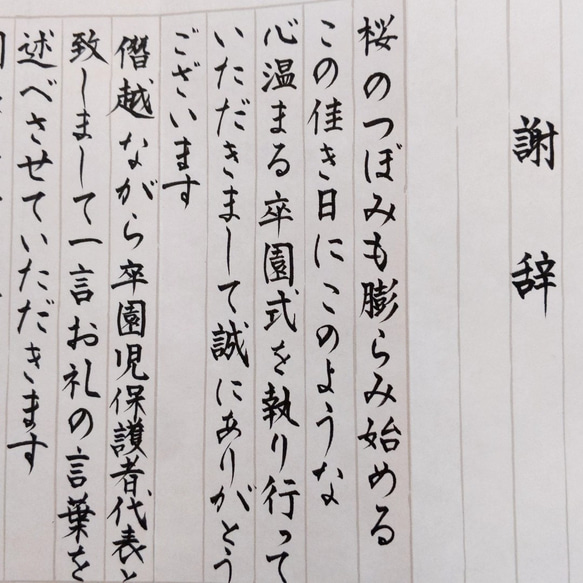 謝辞
桜のつぼみも膨らみ始める
この佳き日にこのような
心温まる卒園式を執り行って
いただきまして誠にありがとう
ございます
僭越ながら卒園児保護者代表と
致しまして一言お礼の言葉を
述べさせていただきます